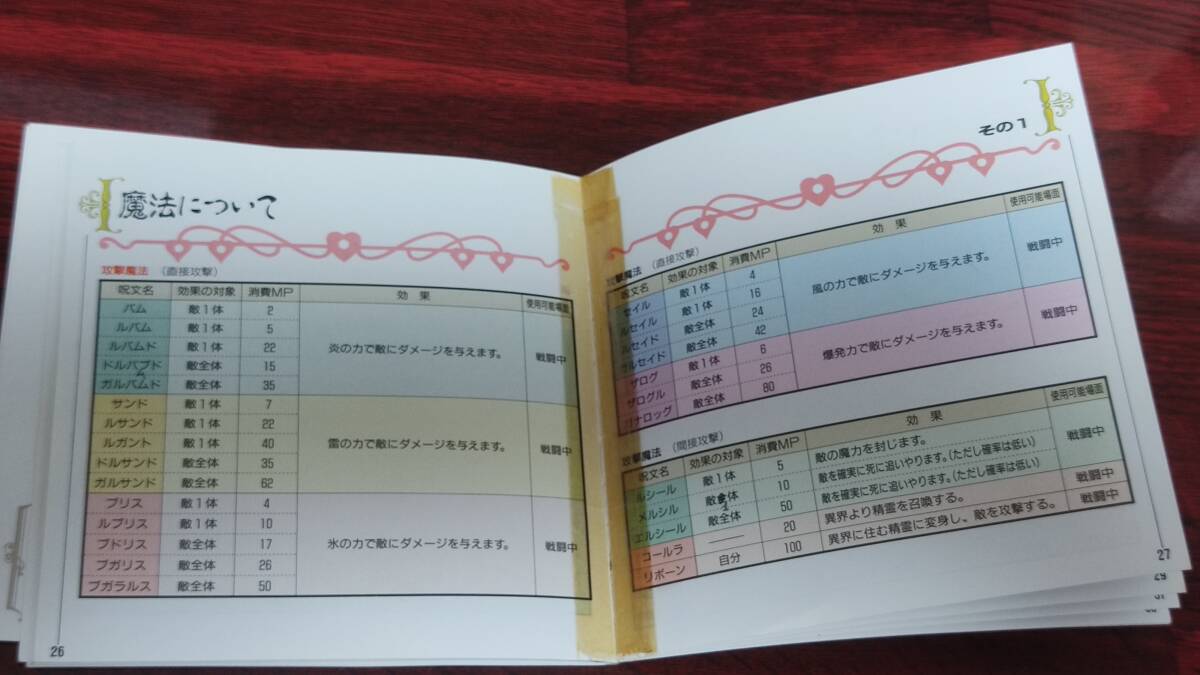 魔法について
攻撃魔法 (直接攻撃)
呪文名 効果の対象 消費MP 効果 使用可能場面
バム 敵1体 2
ルバム 敵1体 5
ルバムド 敵1体 22 炎の力で敵にダメージを与えます。 戦闘中
ドルバブド 敵全体 15
ム
ガルバムド 敵全体 35
サンド 敵1体 7
ルサンド 敵1体 22
ルガント 敵1体 40 雷の力で敵にダメージを与えます。 戦闘中
ドルサンド 敵全体 35
ガルサンド 敵全体 62
ブリス 敵1体 4
ルブリス 敵1体 10
ブドリス 敵全体 17 氷の力で敵にダメージを与えます。 戦闘中
ブガリス 敵全体 26
ブガラルス 敵全体 50
26
その1
攻撃魔法 (直接攻撃)
呪文名 効果の対象 消費MP 効果 使用可能場面
セイル 敵1体 4
ルセイル 敵1体 16 風の力で敵にダメージを与えます。 戦闘中
ルセイド 敵全体 24
ガルセイド 敵全体 42
ザログ 敵1体 6
ザログル 敵全体 26 爆発力で敵にダメージを与えます。 戦闘中
ナロッグ 敵全体 80
攻撃魔法 (間接攻撃)
呪文名 効果の対象 消費MP 効果 使用可能場面
ルシール 敵1体 5 敵の魔力を封じます。
メルシル 敵体 10 敵を確実に死に追いやります。(ただし確率は低い) 戦闘中
エルシール 敵全体 50 敵を確実に死に追いやります。(ただし確率は低い)
コールラ —— 20 異界より精霊を召喚する。 戦闘中
リボーン 自分 100 異界に住む精霊に変身し、敵を攻撃する。 戦闘中
27
29